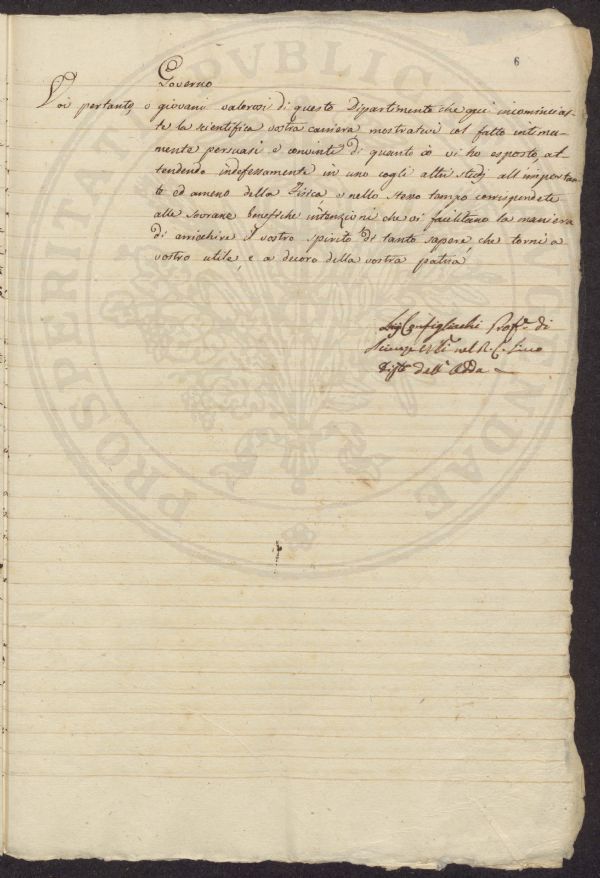 6
Governo
Voi pertanto, o giovani valorosi di questo Dipartimento che qui incomincias-
te la scientifica vostra carriera mostratevi col fatto intima-
mente persuasi e convinti di quanto io vi ho esposto, at-
tendendo indefessamente in uno cogli altri studj all'importan-
te ed ameno della Fisica, e nello stesso tempo corrispondete
alle Sovrane benefiche intenzioni che vi facilitano la maniera
di arricchire il vostro spirito di tanto sapere, che torni a
vostro utile, e a decoro della vostra patria
Configliachi Prof.e di
nel R. Liceo
dell' Adda
PROSPERITATI PVBLIC